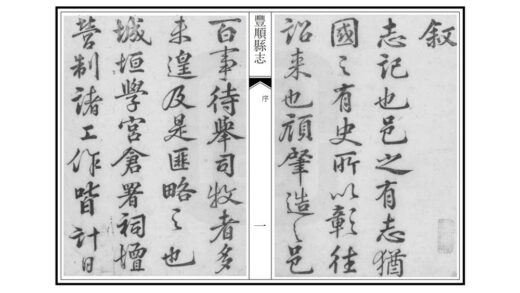 叙
志記也邑之有志猶
國之有史所以彰往
詔来也顧肇造之邑
豐順縣志
序
一
百事待舉司牧者多
未遑及是匪略之也
城垣學宮倉署祠壇
營制諸工作皆計日